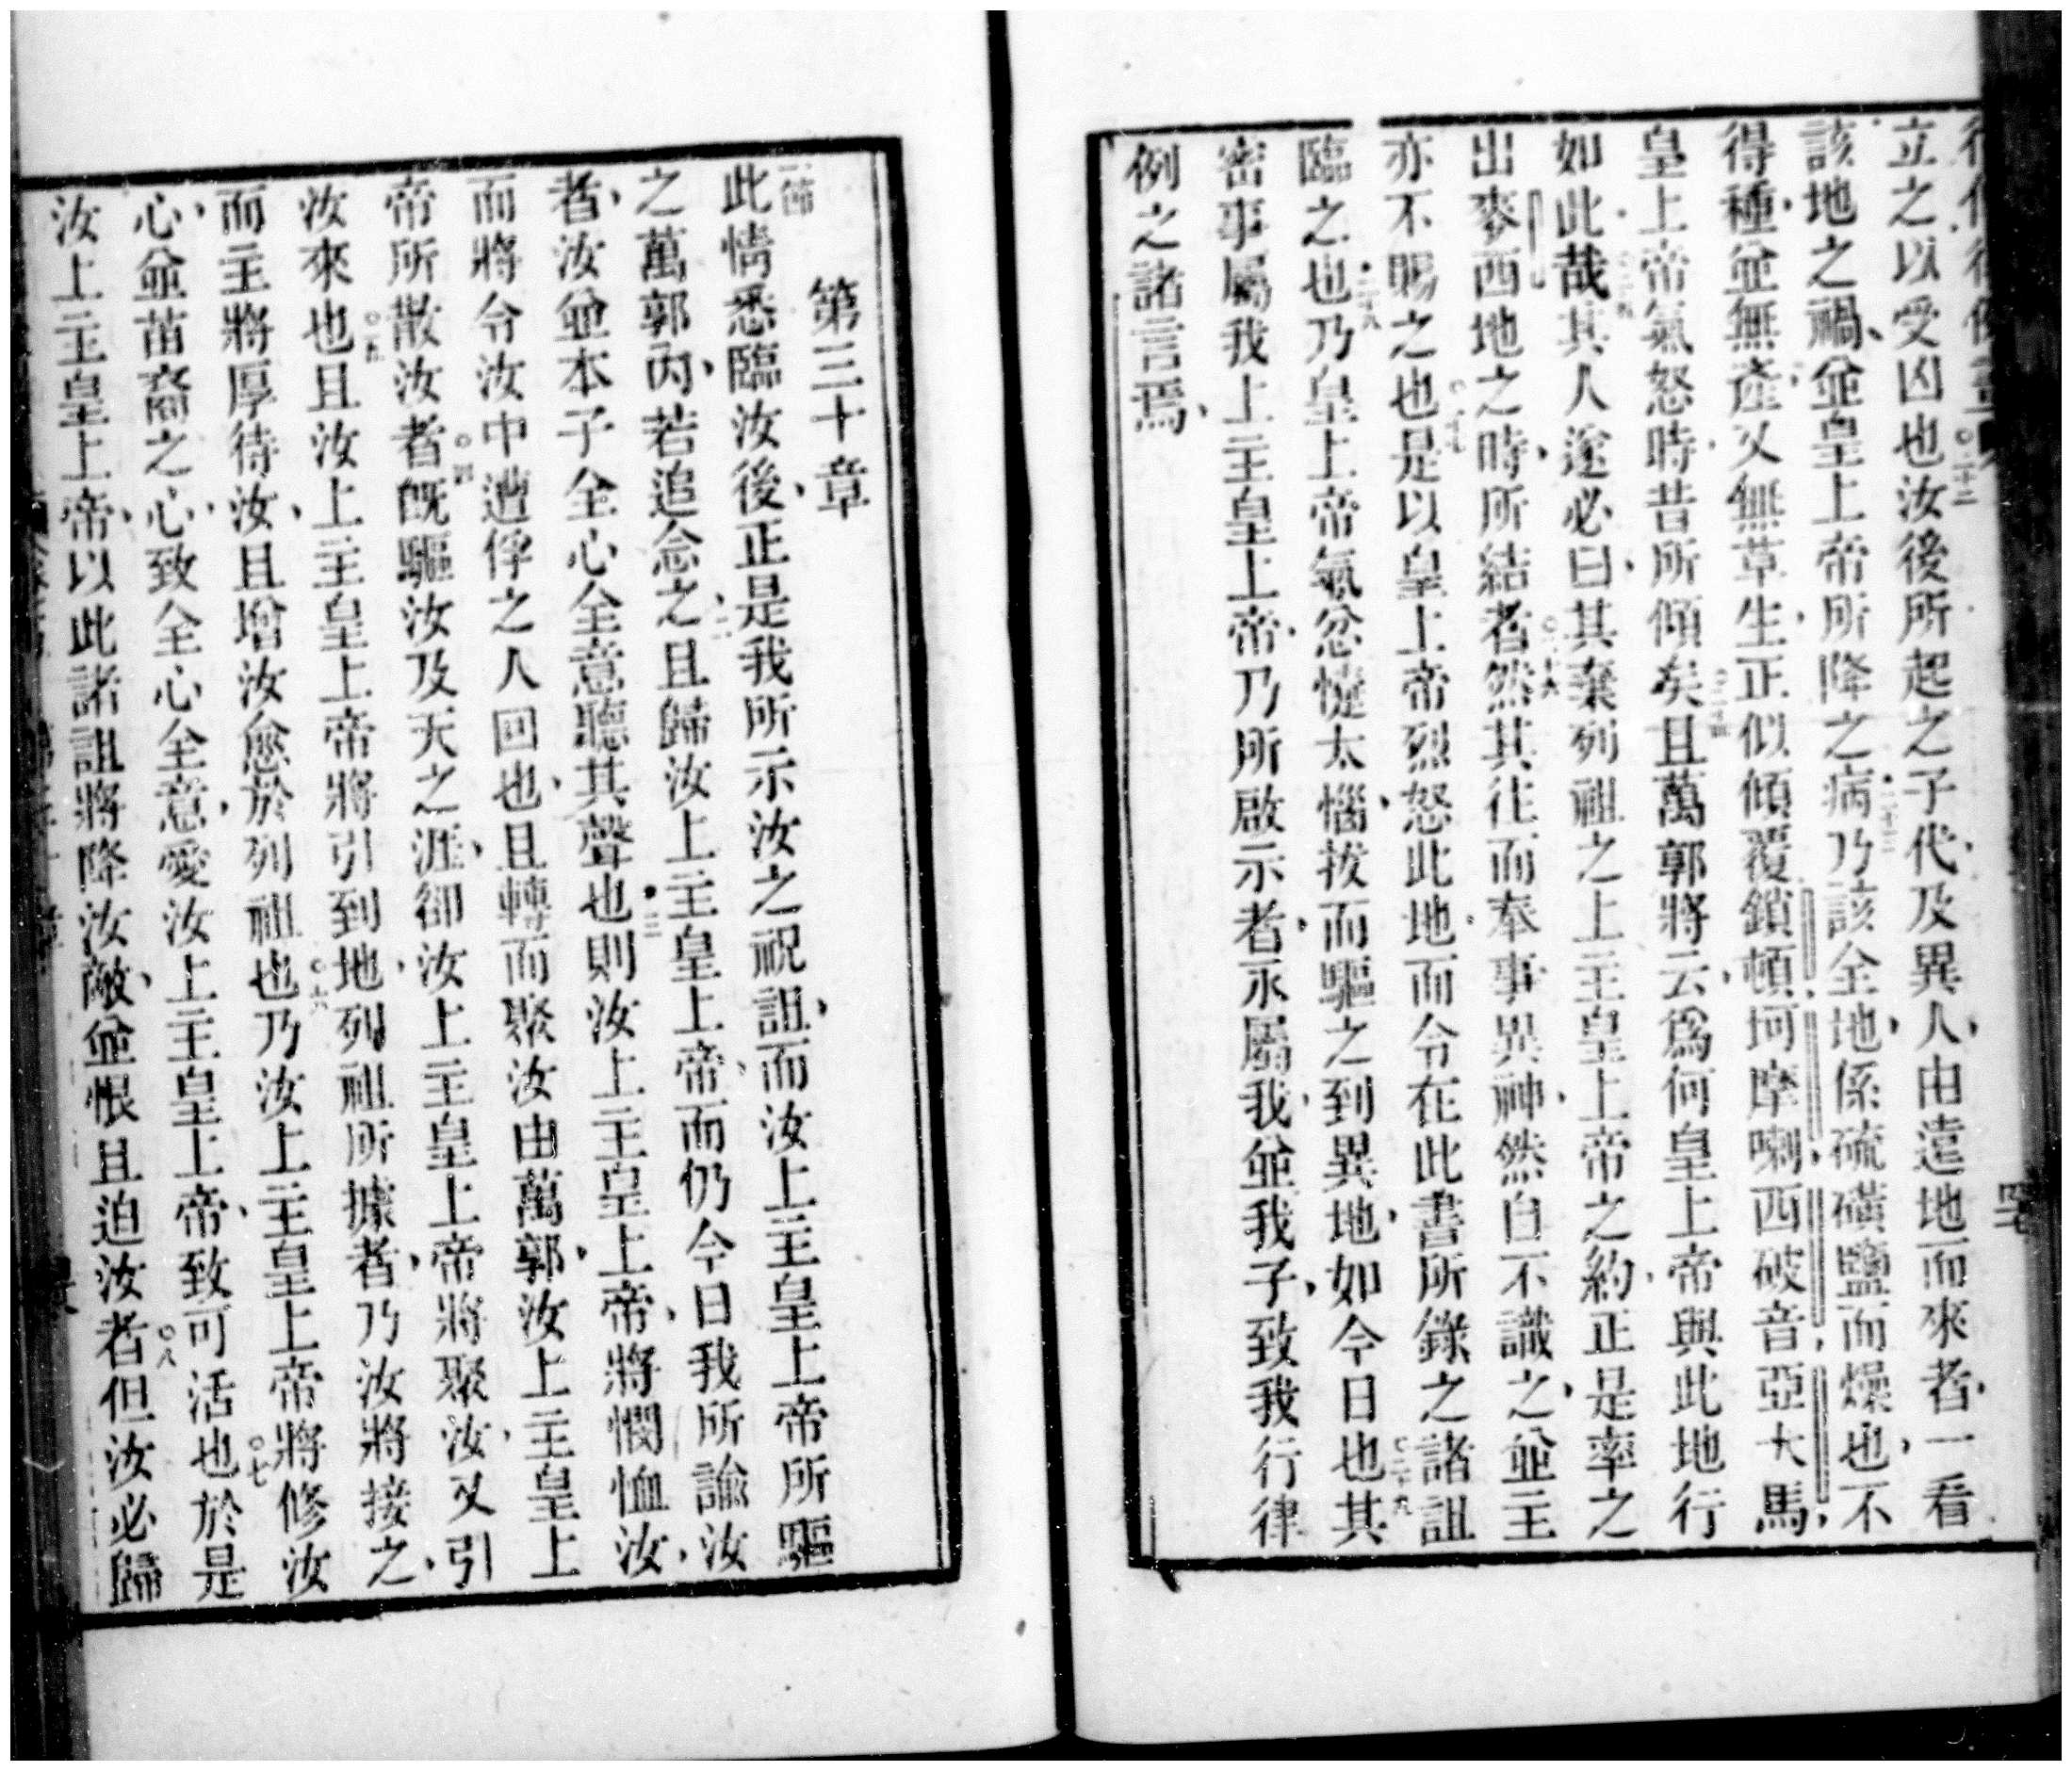 立之以受凶也○二十二汝後所起之子代、及異人、由遠地而來者、一看
該地之禍、並皇上帝所降之病○二十三乃該全地、係硫磺鹽而燥也、不
得種、並無產、又無草生、正似傾覆鎖頓坷摩喇、西破音、亞大馬、
皇上帝氣怒時、昔所傾矣○二十四且萬郭將云、爲何皇上帝與此地行
如此哉○二十五其人遂必曰、其棄列祖之上主皇上帝之約、正是率之
出麥西地之時、所結者○二十六然其往而奉事異神、然自不識之、並主
亦不賜之也○二十七是以皇上帝烈怒此地、而令在此書所錄之諸詛
臨之也○二十八乃皇上帝氣忿懥太惱、拔而驅之到異地、如今日也○二十九其
密事屬我上主皇上帝、乃所啟示者、永屬我、並我子、致我行律
例之諸言焉、
第三十章
一節此情悉臨汝後、正是我所示汝之祝詛、而汝上主皇上帝所驅
之萬郭內、若追念之○二且歸汝上主皇上帝、而仍今日我所諭汝
者、汝並本子全心全意聽其聲也○三則汝上主皇上帝、將憫恤汝、
而將令汝中遭俘之人回也、且轉而聚汝由萬郭、汝上主皇上
帝所散汝者○四旣驅汝及天之涯、卻汝上主皇上帝將聚汝、又引
汝來也○五且汝上主皇上帝將引到地、列祖所據者、乃汝將接之、
而主將厚待汝、且增汝愈於列祖也○六乃汝上主皇上帝將修汝
心、並苗裔之心、致全心全意、愛汝上主皇上帝、致可活也○七於是
汝上主皇上帝、以此諸詛將降汝敵、並恨且迫汝者○八但汝必歸